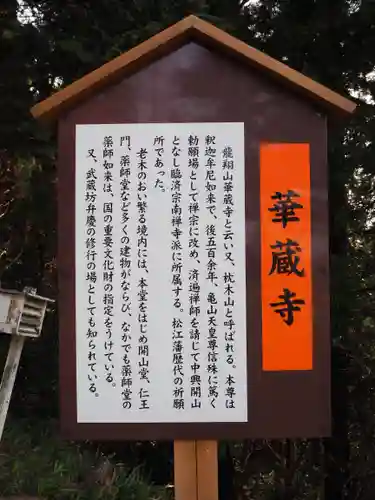 華蔵寺
龍翔山華蔵寺と云い又、枕木山と呼ばれる。本尊は
釈迦牟尼如来で、後五百余年、亀山天皇尊信殊に篤く
勅願場として禅宗に改め、済遍禅師を請じて中興開山
となし臨済宗南禅寺派に所属する。松江藩歴代の祈願
所であった。
老木のおい繁る境内には、本堂をはじめ開山堂、仁王
門、薬師堂など多くの建物がならび、なかでも薬師堂の
薬師如来は、国の重要文化財の指定をうけている。
又、武蔵坊弁慶の修行の場としても知られている。